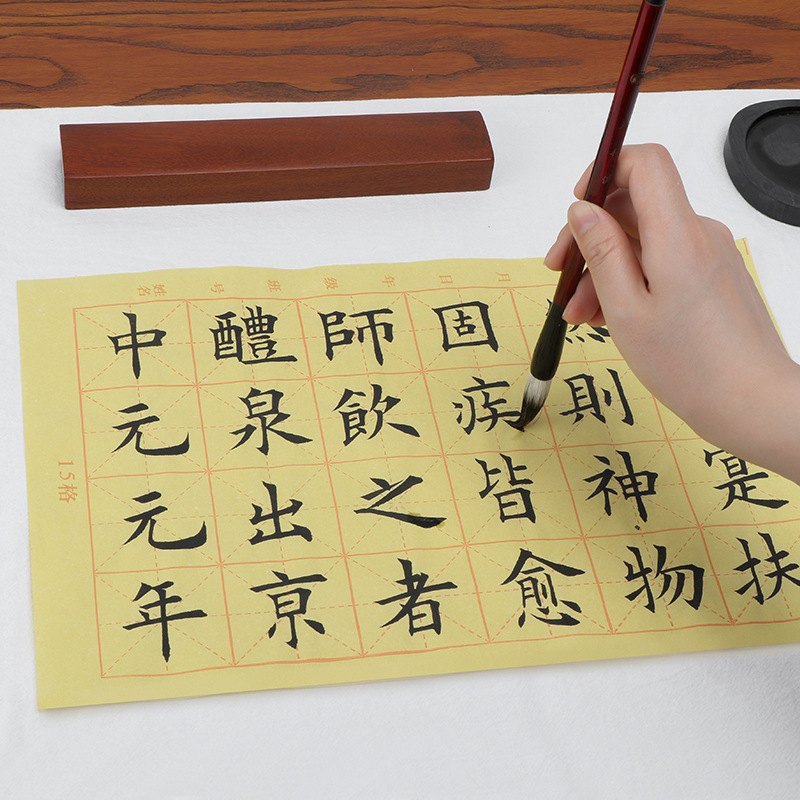 月 日 年 级 班 号 姓名
15格
中元元年
醴泉出京
師飲之者
固疾皆愈
則神物
寔扶